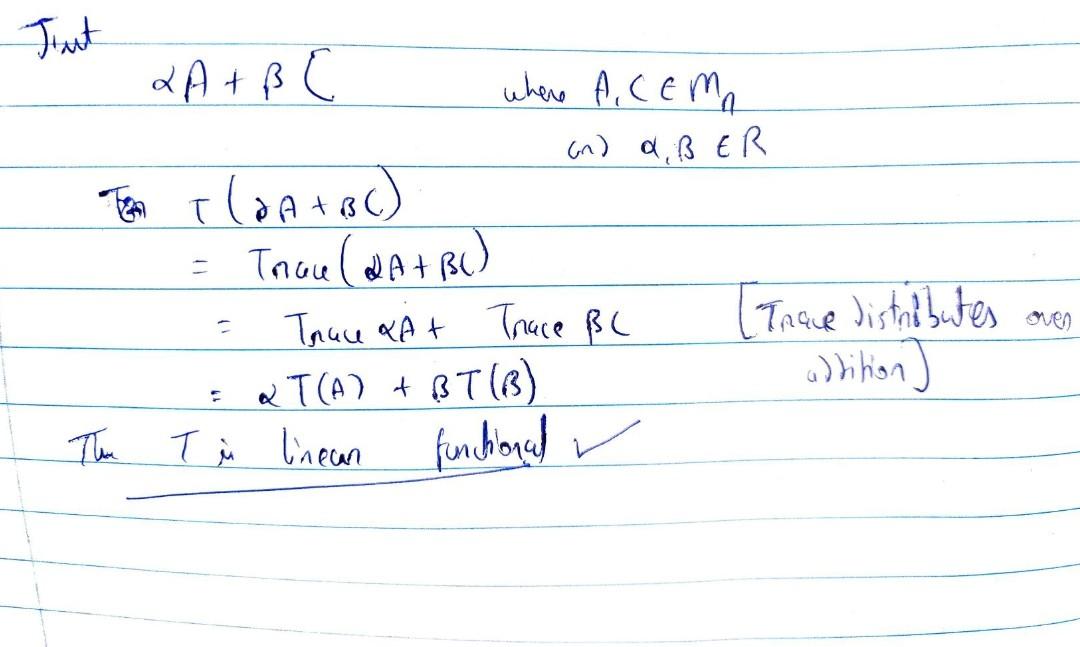 αA + βC where A, C ∈ Mn
and α, β ∈ R
T(αA + βC)
= Trace(αA + βC)
= Trace αA + Trace βC [Trace distributes over
addition]
= αT(A) + βT(B)
Thus T is linear functional ✓